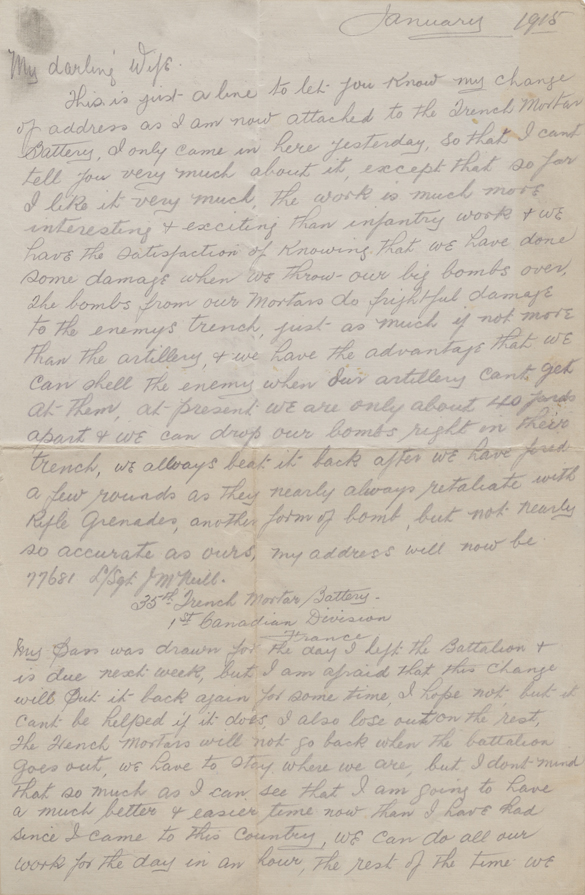 January 1915
My darling Wife.
This is just a line to let you know my change
of address as I am now attached to the Trench Mortar
Battery, I only came in here yesterday, so that I cant
tell you very much about it, except that so far
I like it very much, the work is much more
interesting & exciting than infantry work & we
have the satisfaction of knowing that we have done
some damage when we throw our big bombs over,
the bombs from our Mortars do frightful damage
to the enemys trench, just as much if not more
than the artillery, & we have the advantage that we
can shell the enemy when our artillery cant get
at them, at present we are only about 40 yards
apart & we can drop our bombs right in their
trench, we allways beat it back after we have fired
a few rounds as they nearly always retaliate with
Rifle Grenades, another form of bomb, but not nearly
so accurate as ours, my address will now be
77681 L/Sgt J McNeill.
35th Trench Mortar Battery.
1st Canadian Division
France
My Pass was drawn for the day I left the Battalion &
is due next week, but I am afraid that this change
will put it back again for some time, I hope not, but it
cant be helped if it does, I also lose out on the rest,
the Trench Mortars will not go back when the battalion
goes out, we have to stay where we are, but I dont mind
that so much as I can see that I am going to have
a much better & easier time now than I have had
since I came to this Country, we can do all our
work for the day in an hour, the rest of the time we